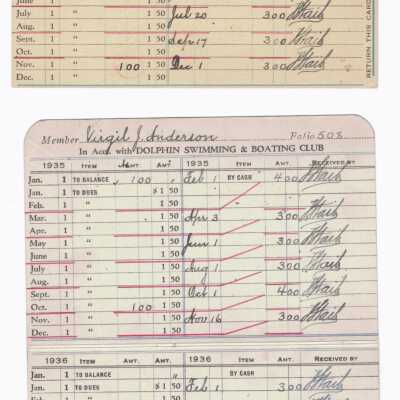 June 1 " 1 50
July 1 " 1 50 Jul 20 300
Aug. 1 " 1 50
Sept. 1 " 1 50 Sep 17 300
Oct. 1 " 1 50
Nov. 1 " 100 1 50 Dec 1 300
Dec. 1 " 1 50
RETURN THIS CARD
Member Virgil J. Anderson Folio 508
In Acct. with DOLPHIN SWIMMING & BOATING CLUB
1935 ITEM AMT. AMT. 1935 ITEM AMT. RECEIVED BY
Jan. 1 TO BALANCE 100 Feb 1 BY CASH 400
Jan. 1 TO DUES $1 50
Feb. 1 " 1 50
Mar. 1 " 1 50 Apr 3 300
Apr. 1 " 1 50
May 1 " 1 50 Jun 1 300
June 1 " 1 50
July 1 " 1 50 Aug 1 300
Aug. 1 " 1 50
Sept. 1 " 1 50 Oct 1 400
Oct. 1 " 100 1 50
Nov. 1 " 1 50 Nov 16 300
Dec. 1 " 1 50
1936 ITEM AMT. AMT. 1936 ITEM AMT. RECEIVED BY
Jan. 1 TO BALANCE " BY CASH
Jan. 1 TO DUES $1 50 Feb 1 300
Feb. 1 " 1 50